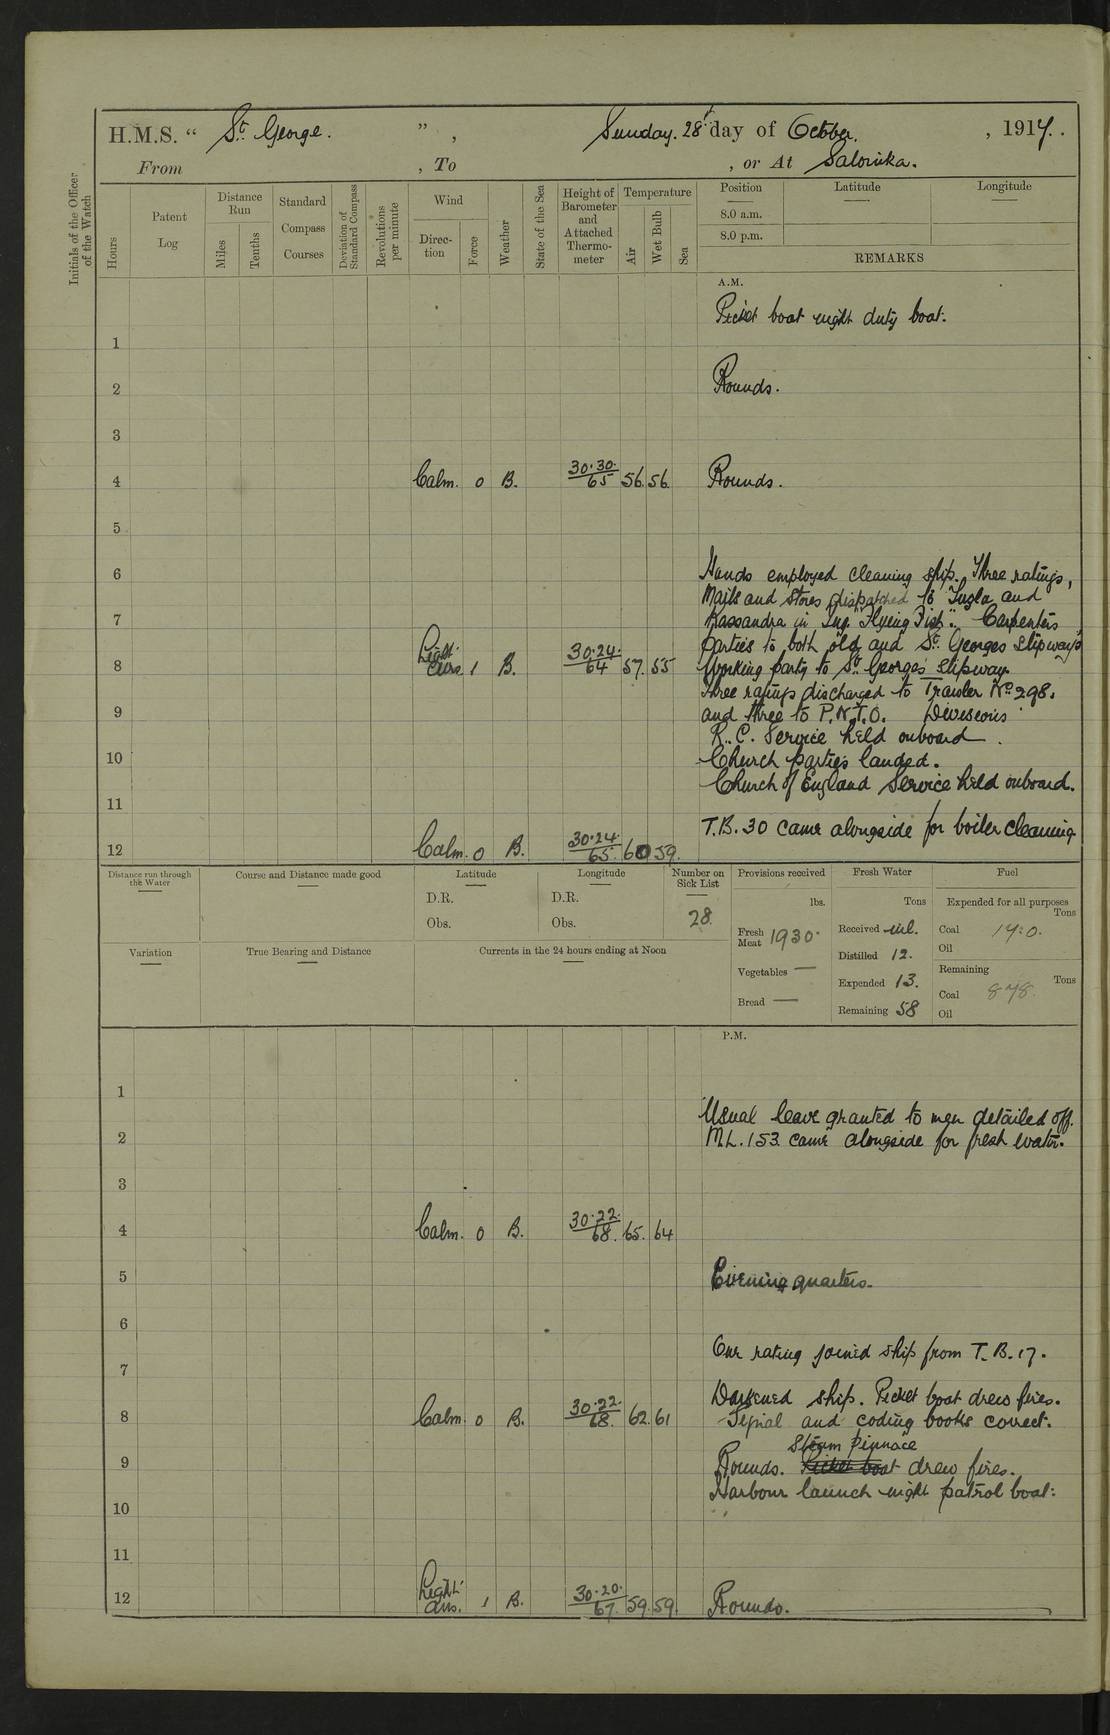 H.M.S. “ St. George. ”, Sunday. 28th day of October. , 1917.
From , To , or At Salonika.
Initials of the Officer of the Watch
Hours
Patent Log
Distance Run
Miles
Tenths
Standard Compass Courses
Deviation of Standard Compass
Revolutions per minute
Wind
Direction
Force
Weather
State of the Sea
Height of Barometer and Attached Thermometer
Temperature
Air
Wet Bulb
Sea
Position Latitude Longitude
8.0 a.m.
8.0 p.m.
REMARKS
A.M.
Picket boat night duty boat.
1
2 Rounds.
3
4 Calm. 0 B. 30.30. 65 56. 56. Rounds.
5
6 Hands employed cleaning ship. Three ratings,
Mails and stores dispatched to Tuzla and
7 Kassandra in Tug "Flying Fish". Carpenters
Parties to both old and St. Georges slipways
8 Light airs 1 B. 30.24. 64 57. 55 Working party to St. Georges slipway
Three ratings discharged to Trawler No. 298.
9 and three to P.N.T.O. Divisions
R.C. Service held onboard.
10 Church parties landed.
Church of England Service held onboard.
11
T.B. 30 came alongside for boiler cleaning.
12 Calm. 0 B. 30.24. 65. 60 59.
Distance run through the Water
Course and Distance made good
Latitude
D.R.
Obs.
Longitude
D.R.
Obs.
Number on Sick List
28.
Provisions received
lbs.
Fresh Meat 1930.
Vegetables —
Bread —
Fresh Water
Tons
Received nil.
Distilled 12.
Expended 13.
Remaining 58
Fuel
Expended for all purposes
Tons
Coal 17.0.
Oil
Remaining
Tons
Coal 878.
Oil
Variation
True Bearing and Distance
Currents in the 24 hours ending at Noon
P.M.
1
Usual leave granted to men detailed off.
2 M.L. 153. came alongside for fresh water.
3
4 Calm. 0 B. 30.22. 68. 65. 64
5 Evening quarters.
6
One rating joined ship from T.B. 17.
7
Darkened ship. Picket boat drew fires.
8 Calm. 0 B. 30.22. 68. 62. 61 Signal and coding books correct.
Steam pinnace
9 Rounds. Picket boat drew fires.
Harbour launch night patrol boat.
10
11
12 Light airs. 1 B. 30.20. 67. 59. 59. Rounds.